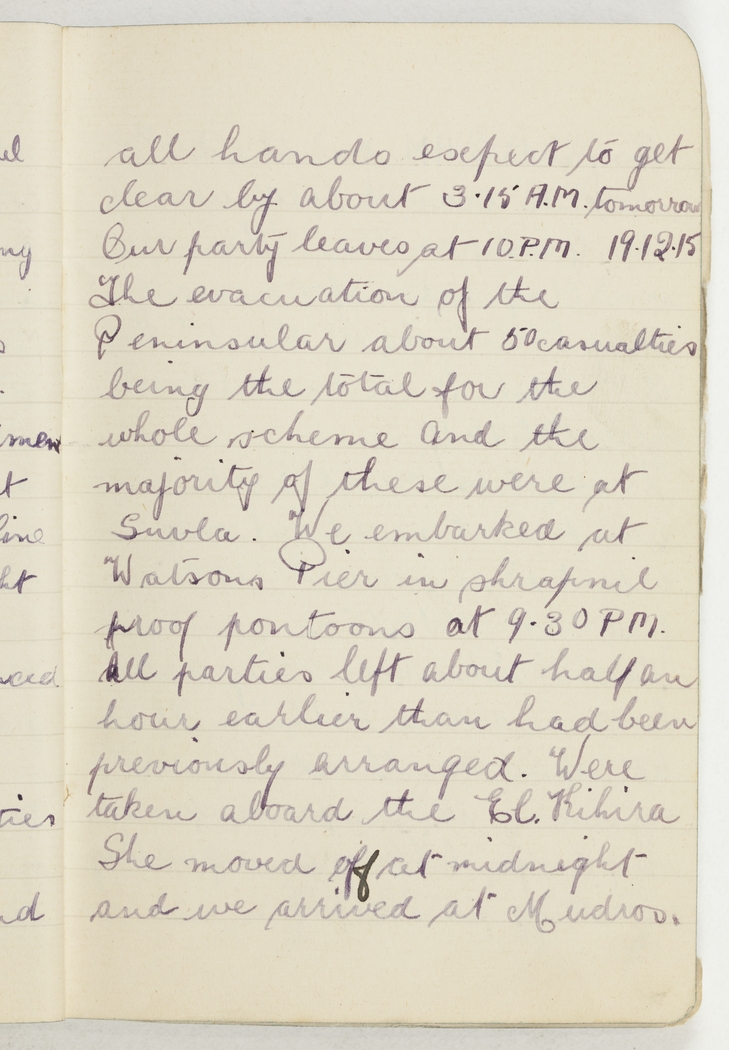 all hands expect to get
clear by about 3.15 A.M. tomorrow
Our party leaves at 10.P.M. 19.12.15
The evacuation of the
Peninsular about 50 casualties
being the total for the
whole scheme and the
majority of these were at
Suvla. We embarked at
Watsons Pier in shrapnil
proof pontoons at 9.30 P.M.
All parties left about half an
hour earlier than had been
previously arranged. Were
taken aboard the El. Kihira
She moved off at midnight
and we arrived at Mudros.